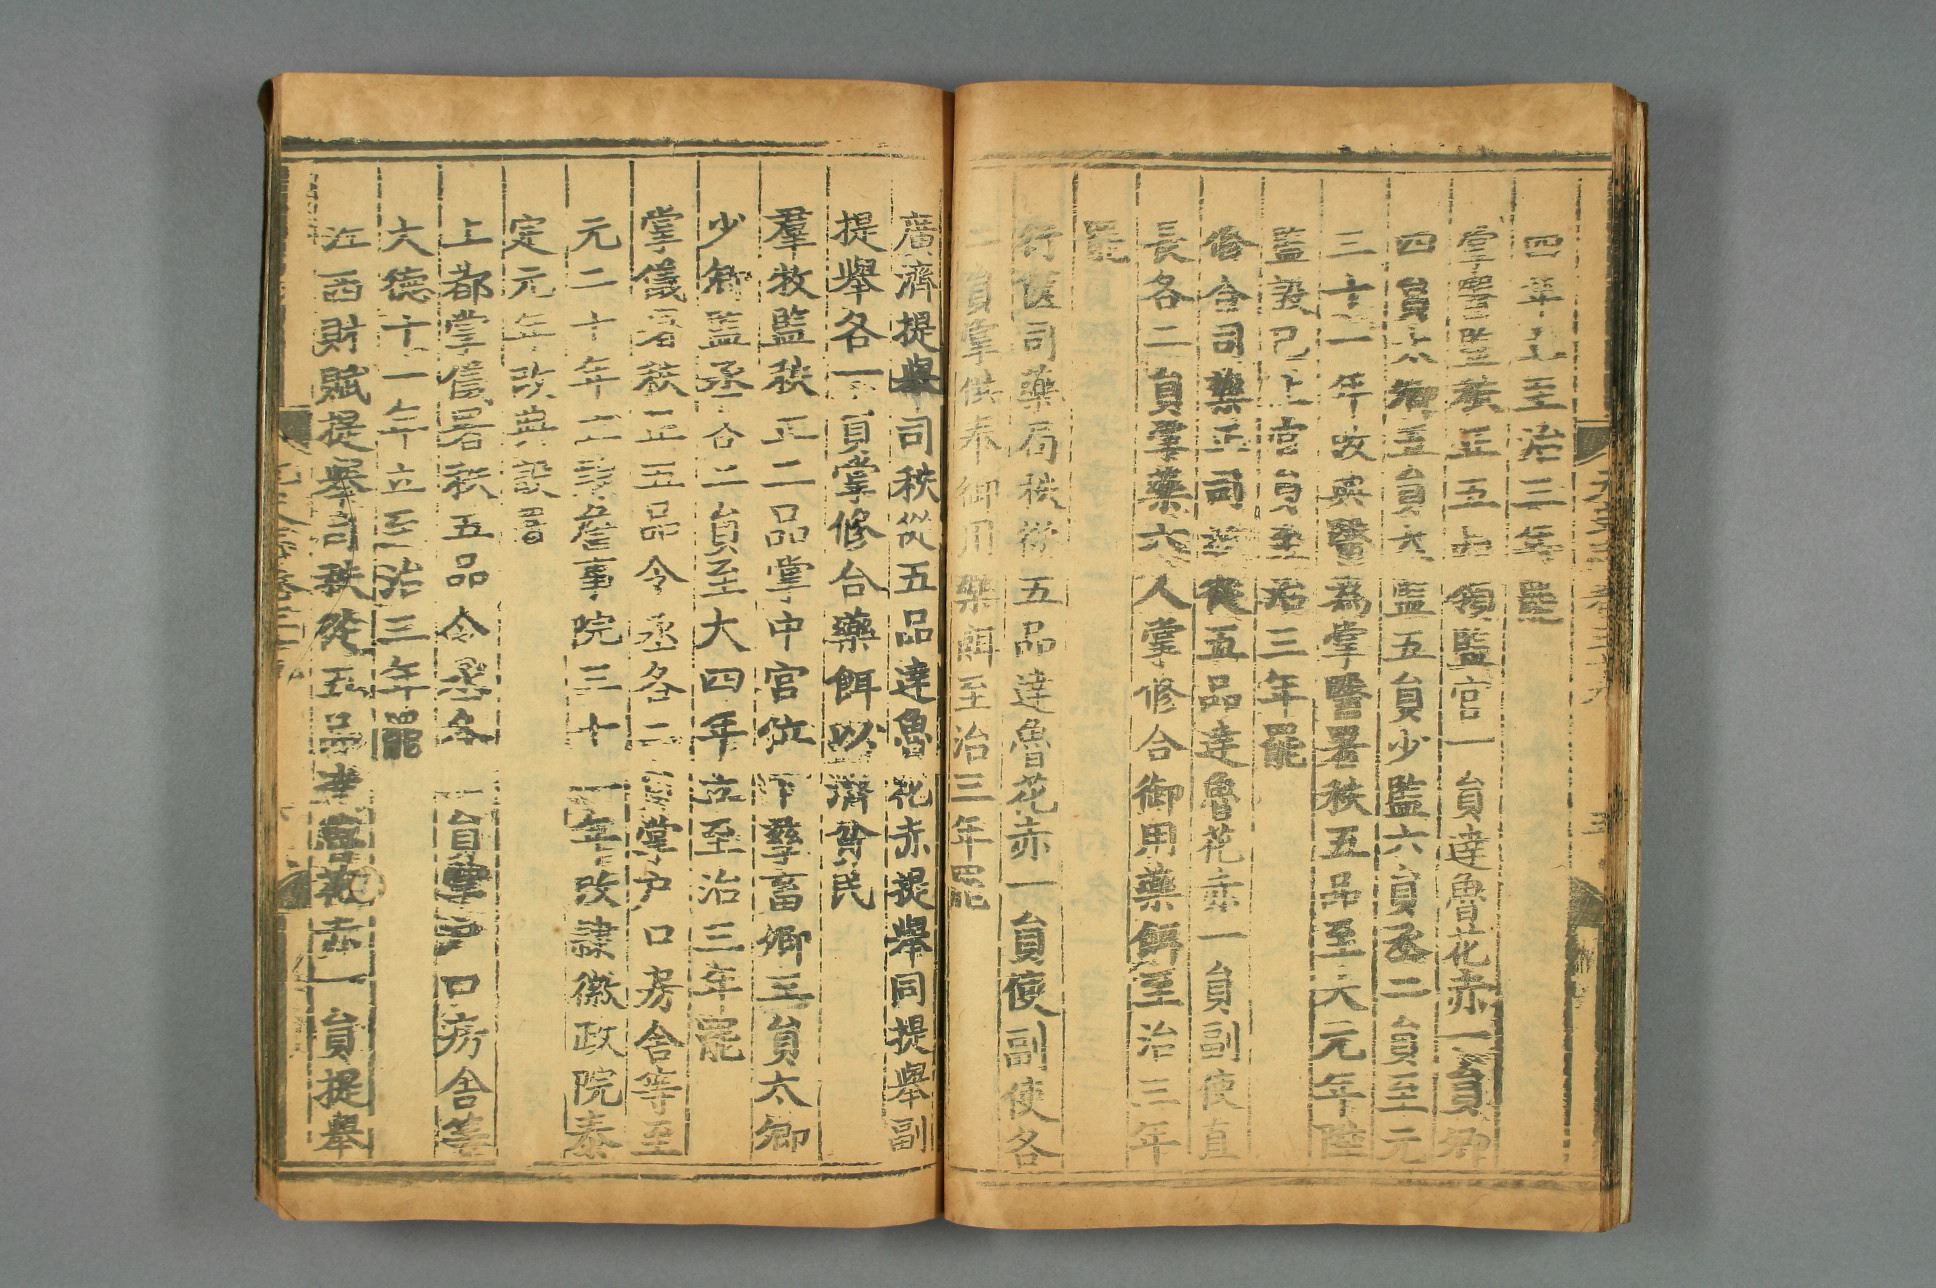 四年立至治三年罷
掌醫監秩正五品領監官一員達魯花赤一員卿
四員太卿五員太監五員少監六員丞二員至元
三十一年改典醫為掌醫署秩五品至大元年陞
監設已上官員至治三年罷
修合司藥正司秩從五品達魯花赤一員副使直
長各二員掌藥六人掌修合御用藥餌至治三年
罷
行篋司藥局秩從五品達魯花赤一員使副使各
二員掌供奉御用藥餌至治三年罷
廣濟提舉司秩從五品達魯花赤提舉同提舉副
提舉各一員掌修合藥餌以濟貧民
羣牧監秩正二品掌中宮位下孳畜卿三員太卿
少卿監丞各二員至大四年立至治三年罷
掌儀署秩正五品令丞各二員掌戶口房舍等至
元二十年立隸詹事院三十一年改隸徽政院泰
定元年改典設署
上都掌儀署秩五品令丞各一員掌戶口房舍等
大德十一年立至治三年罷
江西財賦提舉司秩從五品達魯花赤一員提舉